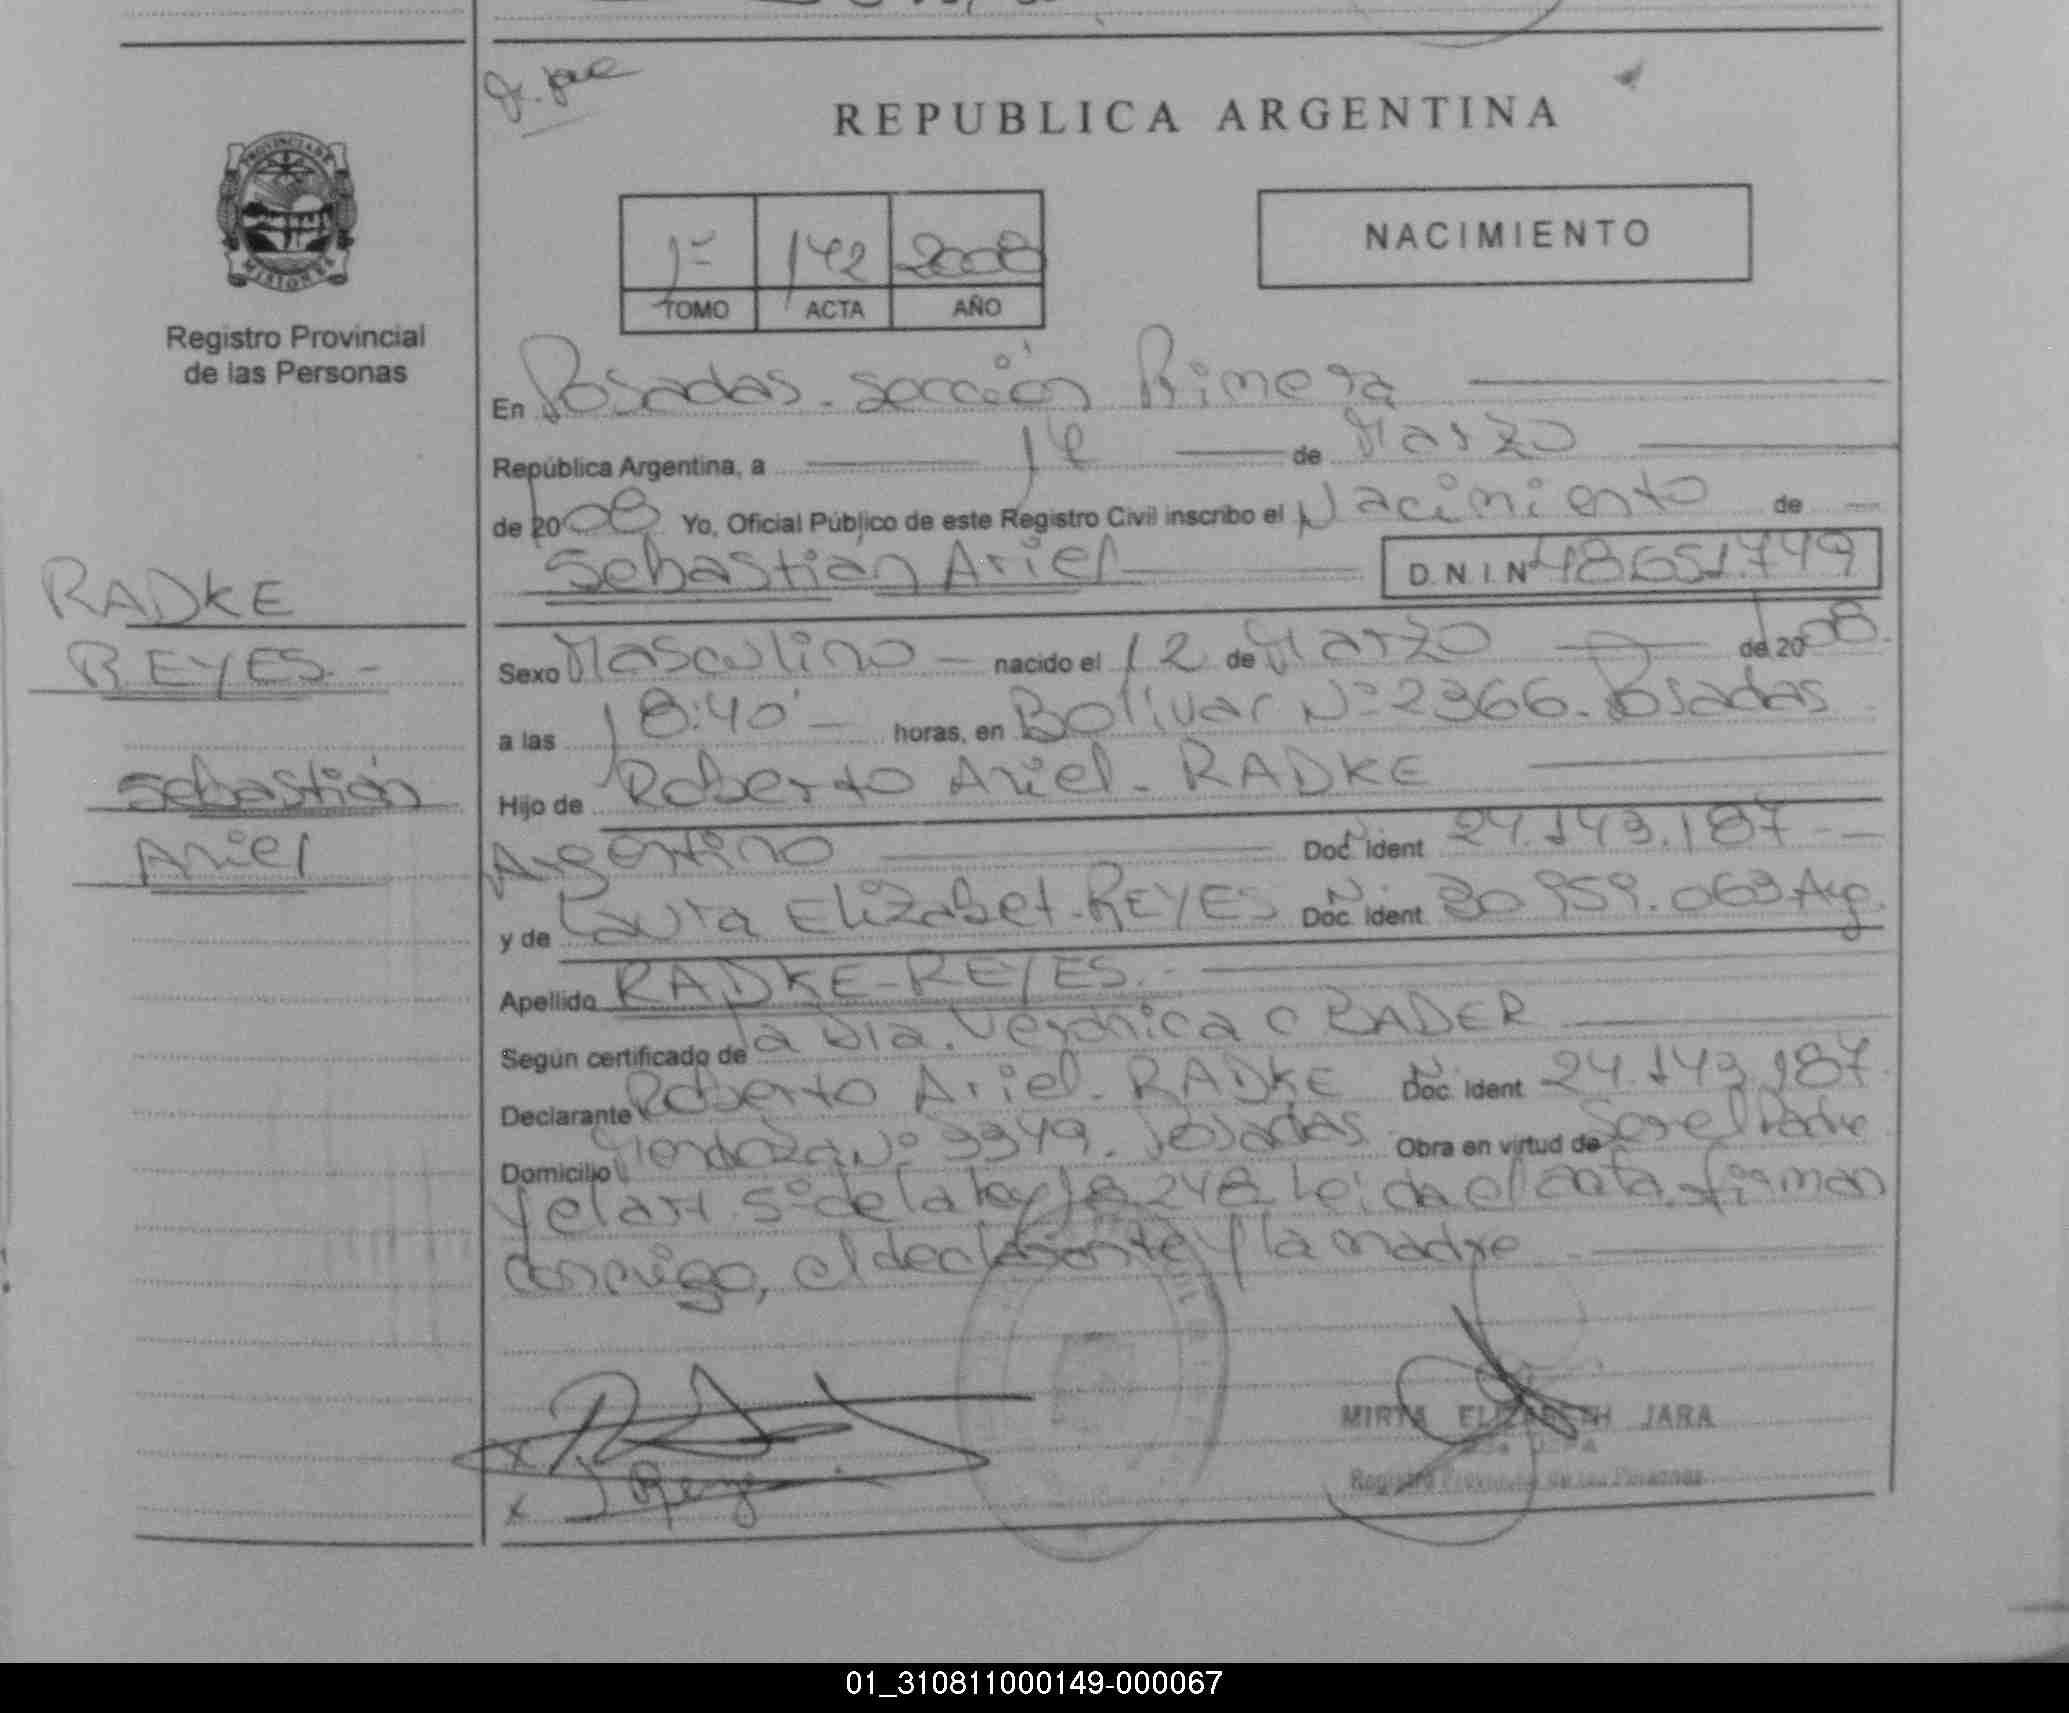 REPUBLICA ARGENTINA
PROVINCIA DE
MISIONES
Registro Provincial
de las Personas
1º 142 2008
TOMO ACTA AÑO
NACIMIENTO
En Posadas. sección Primera
República Argentina, a 14 de Marzo
de 2008 Yo, Oficial Público de este Registro Civil inscribo el Nacimiento de
Sebastián Ariel D.N.I. Nº 48.651.749
RADKE
REYES.-
Sebastián
Ariel
Sexo Masculino nacido el 12 de Marzo de 2008.
a las 18:40' horas, en Bolívar Nº 2366. Posadas
Hijo de Roberto Ariel. RADKE
Argentino Doc. Ident 24.143.187
y de Laura Elizabet. REYES Doc. Ident 30.959.063 Arg.
Apellido RADKE-REYES.-
Según certificado de la Dra. Verónica C RADER
Declarante Roberto Ariel. RADKE Doc. Ident 24.143.187
Domicilio Mendoza Nº 3349. Posadas Obra en virtud de Ser el Padre
y el art. 5º de la ley 18.248. Leída el acta, firman
conmigo, el declarante y la madre
MIRTA ELIZABETH JARA
Registro Provincial de las Personas
01_310811000149-000067